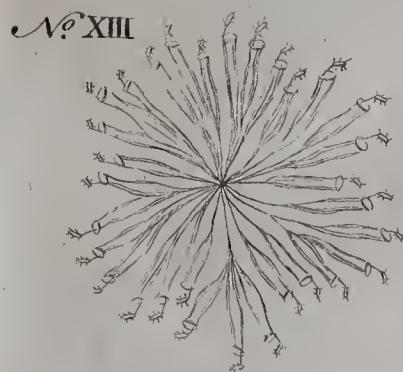 Nº XIII